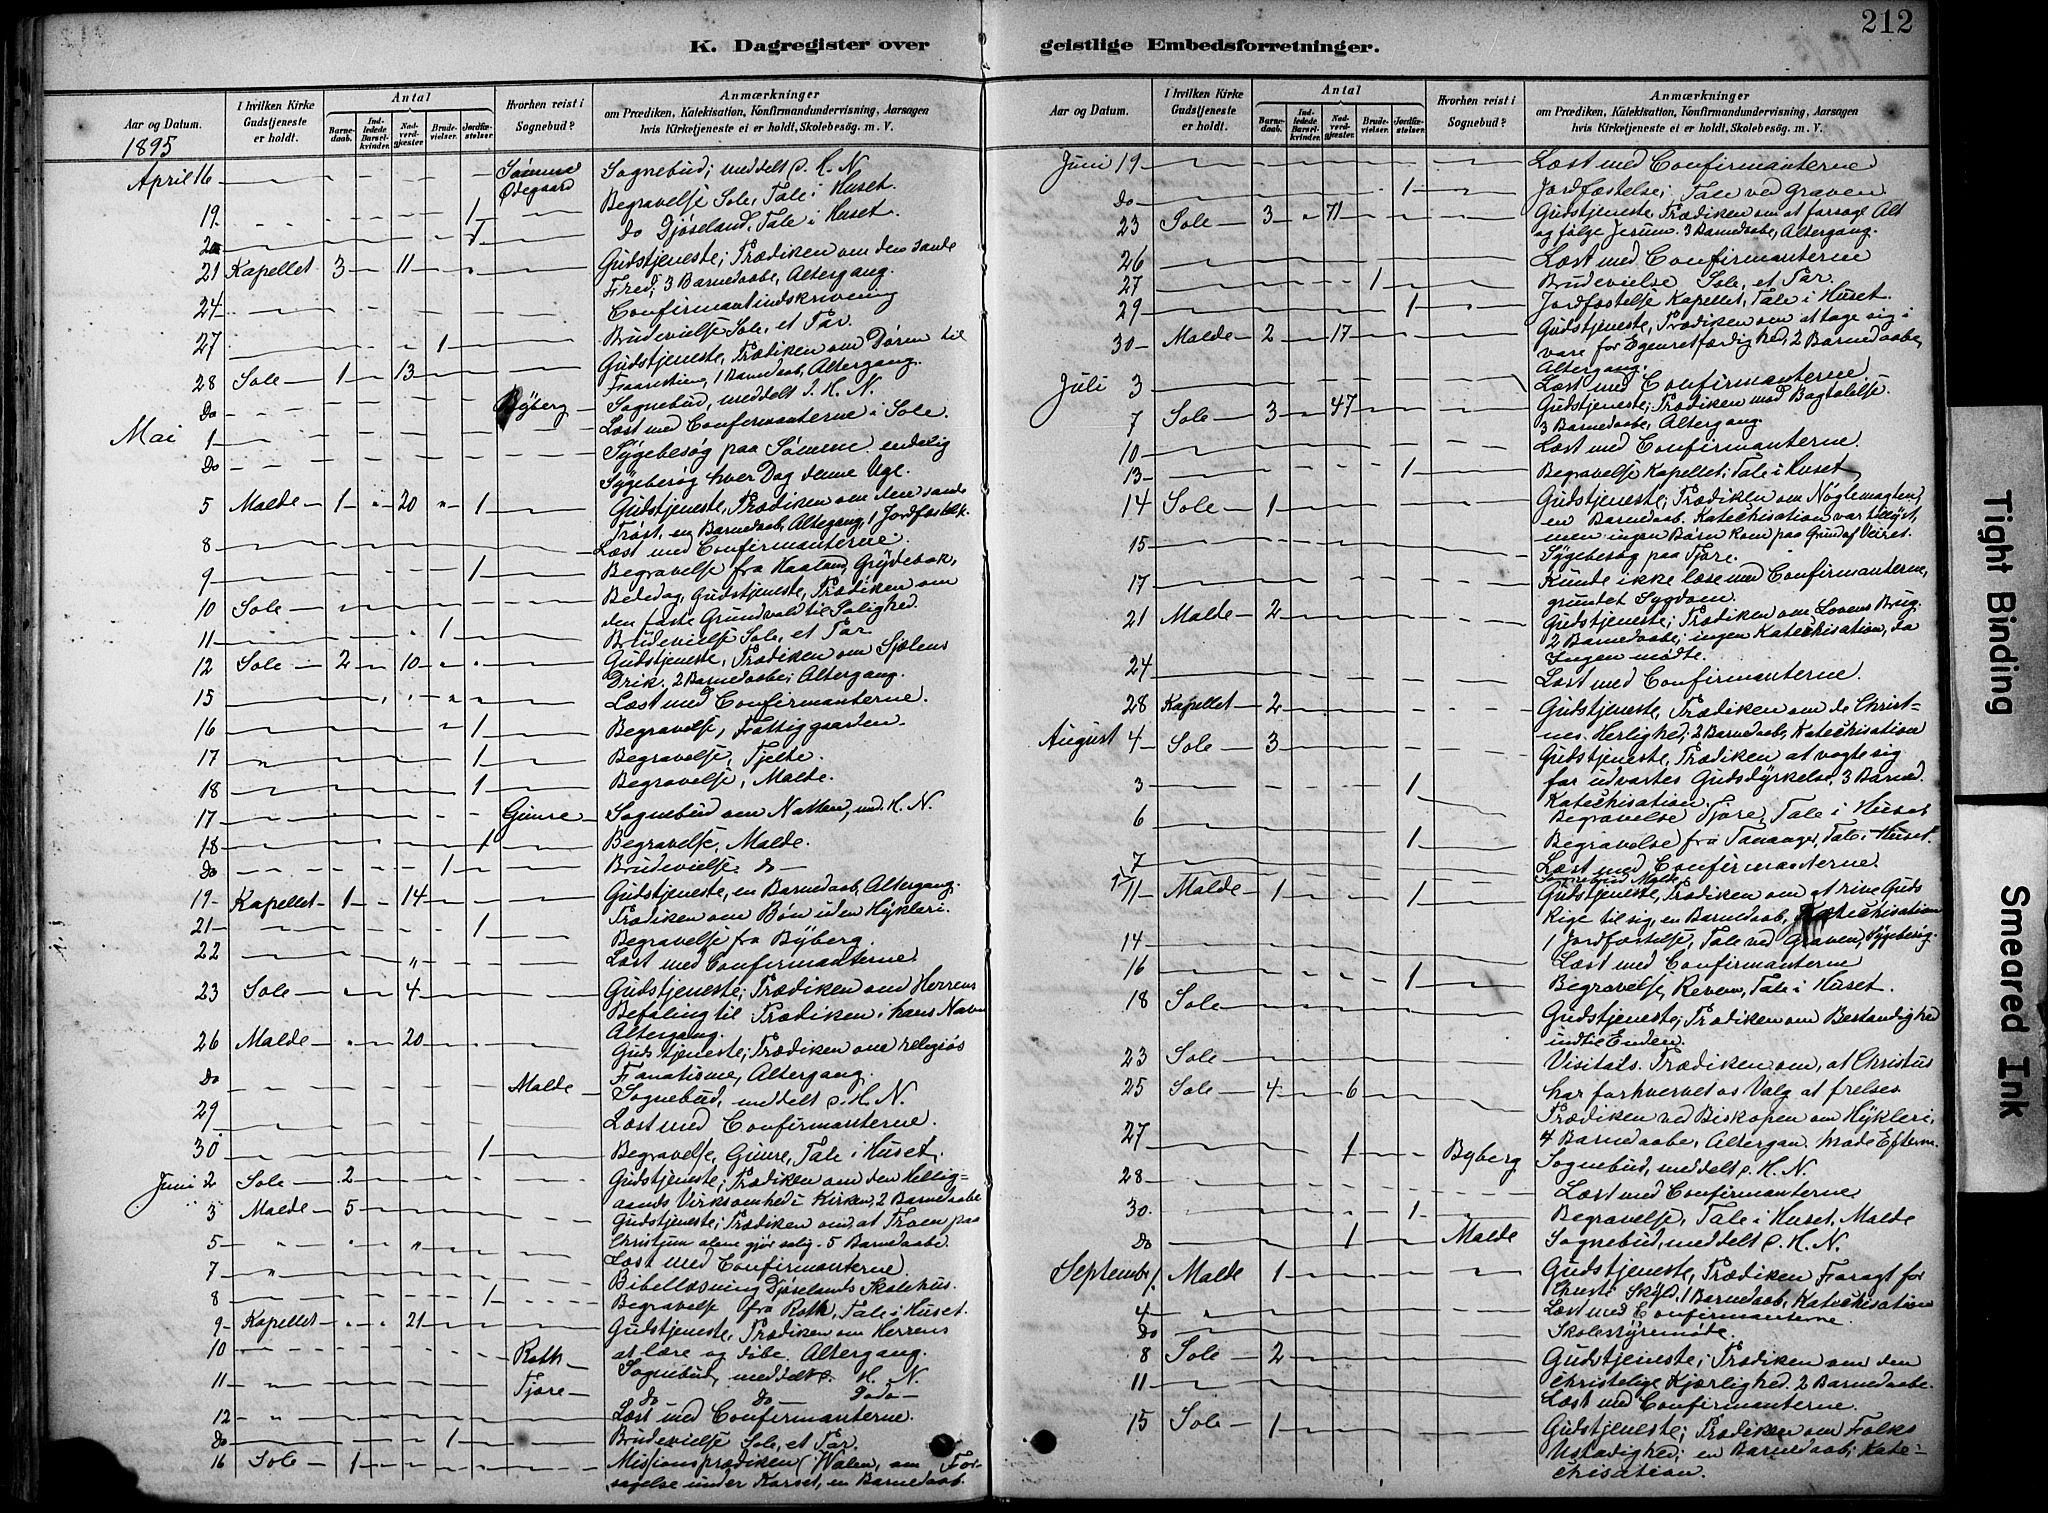 212
K. Dagregister over geistlige Embedsforretninger.
Aar og Datum. I hvilken Kirke Gudstjeneste er holdt. Antal Barnedaab. Indledede Barselkvinder. Nadverdgjester. Brudevielser. Jordfæstelser. Hvorhen reist i Sognebud? Anmærkninger om Prædiken, Katekisation, Konfirmandundervisning, Aarsagen hvis Kirketjeneste ei er holdt, Skolebesøg. m. V.
1895
April 16 Sømme Ødegaard Sognebud; meddelt d. H. N.
19. 1 Begravelse Sole, Tale i Huset.
20 1 Do Djøseland, Tale i Huset.
21 Kapellet 3 11 Gudstjeneste; Prædiken om den sande
Fred; 3 Barnedaabe, Altergang.
24 Confirmantindskrivening
27 1 Brudevielse Sole, et Par.
28 Sole 1 13 Gudstjeneste, Prædiken om Døren til
Faarestien, 1 Barnedaab, Altergang.
Do Byberg Sognebud, meddelt d. H. N.
Mai 1 Læst med Confirmanterne i Sole.
Do Sygebesøg paa Sømme endelig
Sygebesøg hver Dag denne Uge.
5 Malde 1 20 1 Gudstjeneste, Prædiken om den sande
Trøst, en Barnedaab, Altergang, 1 Jordfæstelse.
8 Læst med Confirmanterne.
9 1 Begravelse fra Haaland, Grydebak,
10 Sole Bededag, Gudstjeneste, Prædiken om
den faste Grundvold til Salighed.
11 1 Brudevielse Sole, et Par
12 Sole 2 10 Gudstjeneste, Prædiken om Sjælens
Drik. 2 Barnedaabe; Altergang.
15 Læst med Confirmanterne.
16 1 Begravelse, Fattiggaarden.
17 1 Begravelse, Tjelte.
18 1 Begravelse, Malde.
17 Gimre Sognebud om Natten, md. H. N.
18 1 Begravelse, Malde.
Do 1 Brudevielse do
19 Kapellet 1 14 Gudstjeneste, en Barnedaab, Altergang.
Prædiken om Bøn uden Hykleri.
21 1 Begravelse fra Byberg.
22 Læst med Confirmanterne.
23 Sole 4 Gudstjeneste; Prædiken om Herrens
Befaling til Prædiken i hans Navn
Altergang.
26 Malde 20 Gudstjeneste; Prædiken om religiøs
Fanatisme, Altergang.
Do Malde Sognebud, meddelt d. H. N.
29 Læst med Confirmanterne.
30 1 Begravelse, Gimre, Tale i Huset.
Juni 2 Sole 2 Gudstjeneste; Prædiken om den Hellig=
aands Virksomhed i Kirken, 2 Barnedaabe
3 Malde 5 Gudstjeneste; Prædiken om, at Troen paa
Christum alene gjør salig. 5 Barnedaabe.
5 Læst med Confirmanterne.
7 Bibellæsning Djøselands Skolehus.
8 1 Begravelse fra Roth, Tale i Huset.
9 Kapellet 21 Gudstjeneste, Prædiken om Herrens
at lære og døbe. Altergang.
10 Roth Sognebud, meddelt d. H. N.
11 Tjore Do Do Dodo
12 Læst med Confirmanterne.
Do 1 Brudevielse Sole, et Par.
16 Sole 1 Missionsprædiken (Walen, om For-
sagelse under Korset, en Barnedaab.
Juni 19 Læst med Confirmanterne
Do 1 Jordfæstelse; Tale ved Graven
23 Sole 3 71 Gudstjeneste, Prædiken om at forsage Alt
og følge Jesum. 3 Barnedaabe, Altergang.
26 Læst med Confirmanterne
27 1 Brudevielse Sole, et Par.
29 1 Jordfæstelse Kapellet, Tale i Huset.
30 Malde 2 17 Gudstjeneste, Prædiken om at tage sig i
vare for Egenretfærdighed, 2 Barnedaabe,
Altergang.
Juli 3 Læst med Confirmanterne,
7 Sole 3 47 Gudstjeneste; Prædiken mod Bagtalelse.
3 Barnedaabe, Altergang.
10 Læst med Confirmanterne.
13 1 Begravelse Kapellet; Tale i Huset
14 Sole 1 Gudstjeneste; Prædiken om Nøglemagten,
en Barnedaab. Katechisation var tillyst,
men ingen Børn kom paa Grund af Veiret.
15 Sygebesøg paa Tjore.
17 Kunde ikke læse med Confirmanterne,
grundet Sygdom.
21 Malde 2 Gudstjeneste; Prædiken om Lovens Brug.
2 Barnedaabe; ingen Katechisation, da
Ingen mødte.
24 Læst med Confirmanterne.
28 Kapellet 2 Gudstjeneste, Prædiken om de Christ=
nes Herlighed; 2 Barnedaab, Katechisation
August 4 Sole 3 Gudstjeneste, Prædiken at vogte sig
for udvortes Gudsdyrkelse. 3 Barned.
Katechisation.
3 1 Begravelse Tjore, Tale i Huset
6 1 Begravelse fra Tananger, Tale i Huset.
7 Læst med Confirmanterne
Sognebud Malde
11 Malde 1 1 Gudstjeneste, Prædiken om at rive Guds
Rige til sig, en Barnedaab, Katechisation
1 Jordfæstelse, Tale ved Graven, Sygebesøg.
14 Læst med Confirmanterne
16 1 Begravelse, Reven, Tale i Huset.
18 Sole Gudstjeneste; Prædiken om Bestandighed
indtil Enden.
23 Sole Visitats. Prædiken om, at Christus
har forhvervet os Valg at frelses
25 Sole 4 6 Prædiken ved Biskopen om Hykleri,
4 Barnedaabe, Altergan. Møde Efterm.
27 1 Byberg Sognebud, meddelt d. H. N.
28 Læst med Confirmanterne
30. 1 Begravelse, Tale i Huset, Malde
Do 1 Malde Sognebud, meddelt d. H. N.
Septembr 1. Malde 1 Gudstjeneste, Prædiken Foragt for
Christi Skyld, 1 Barnedaab, Katechisation
4 Læst med Confirmanterne.
Do Skolestyremøde.
8 Sole 2 Gudstjeneste; Prædiken om den
christelige Kjærlighed. 2 Barnedaabe.
11 Læst med Confirmanterne.
15 Sole 1 Gudstjeneste; Prædiken om Folks
Ustadighed; en Barnedaab; Kate-
chisation.
Tight Binding
Smeared Ink